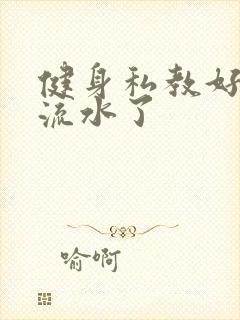 健身私教好
流水了
喻啊